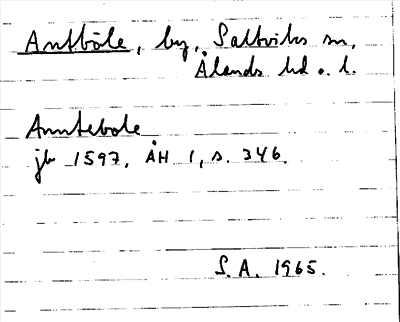 Antböle, by, Saltviks sn,
Ålands hd o. l.
Anntebole
jb 1597, ÅH 1, s. 346.
S.A. 1965.